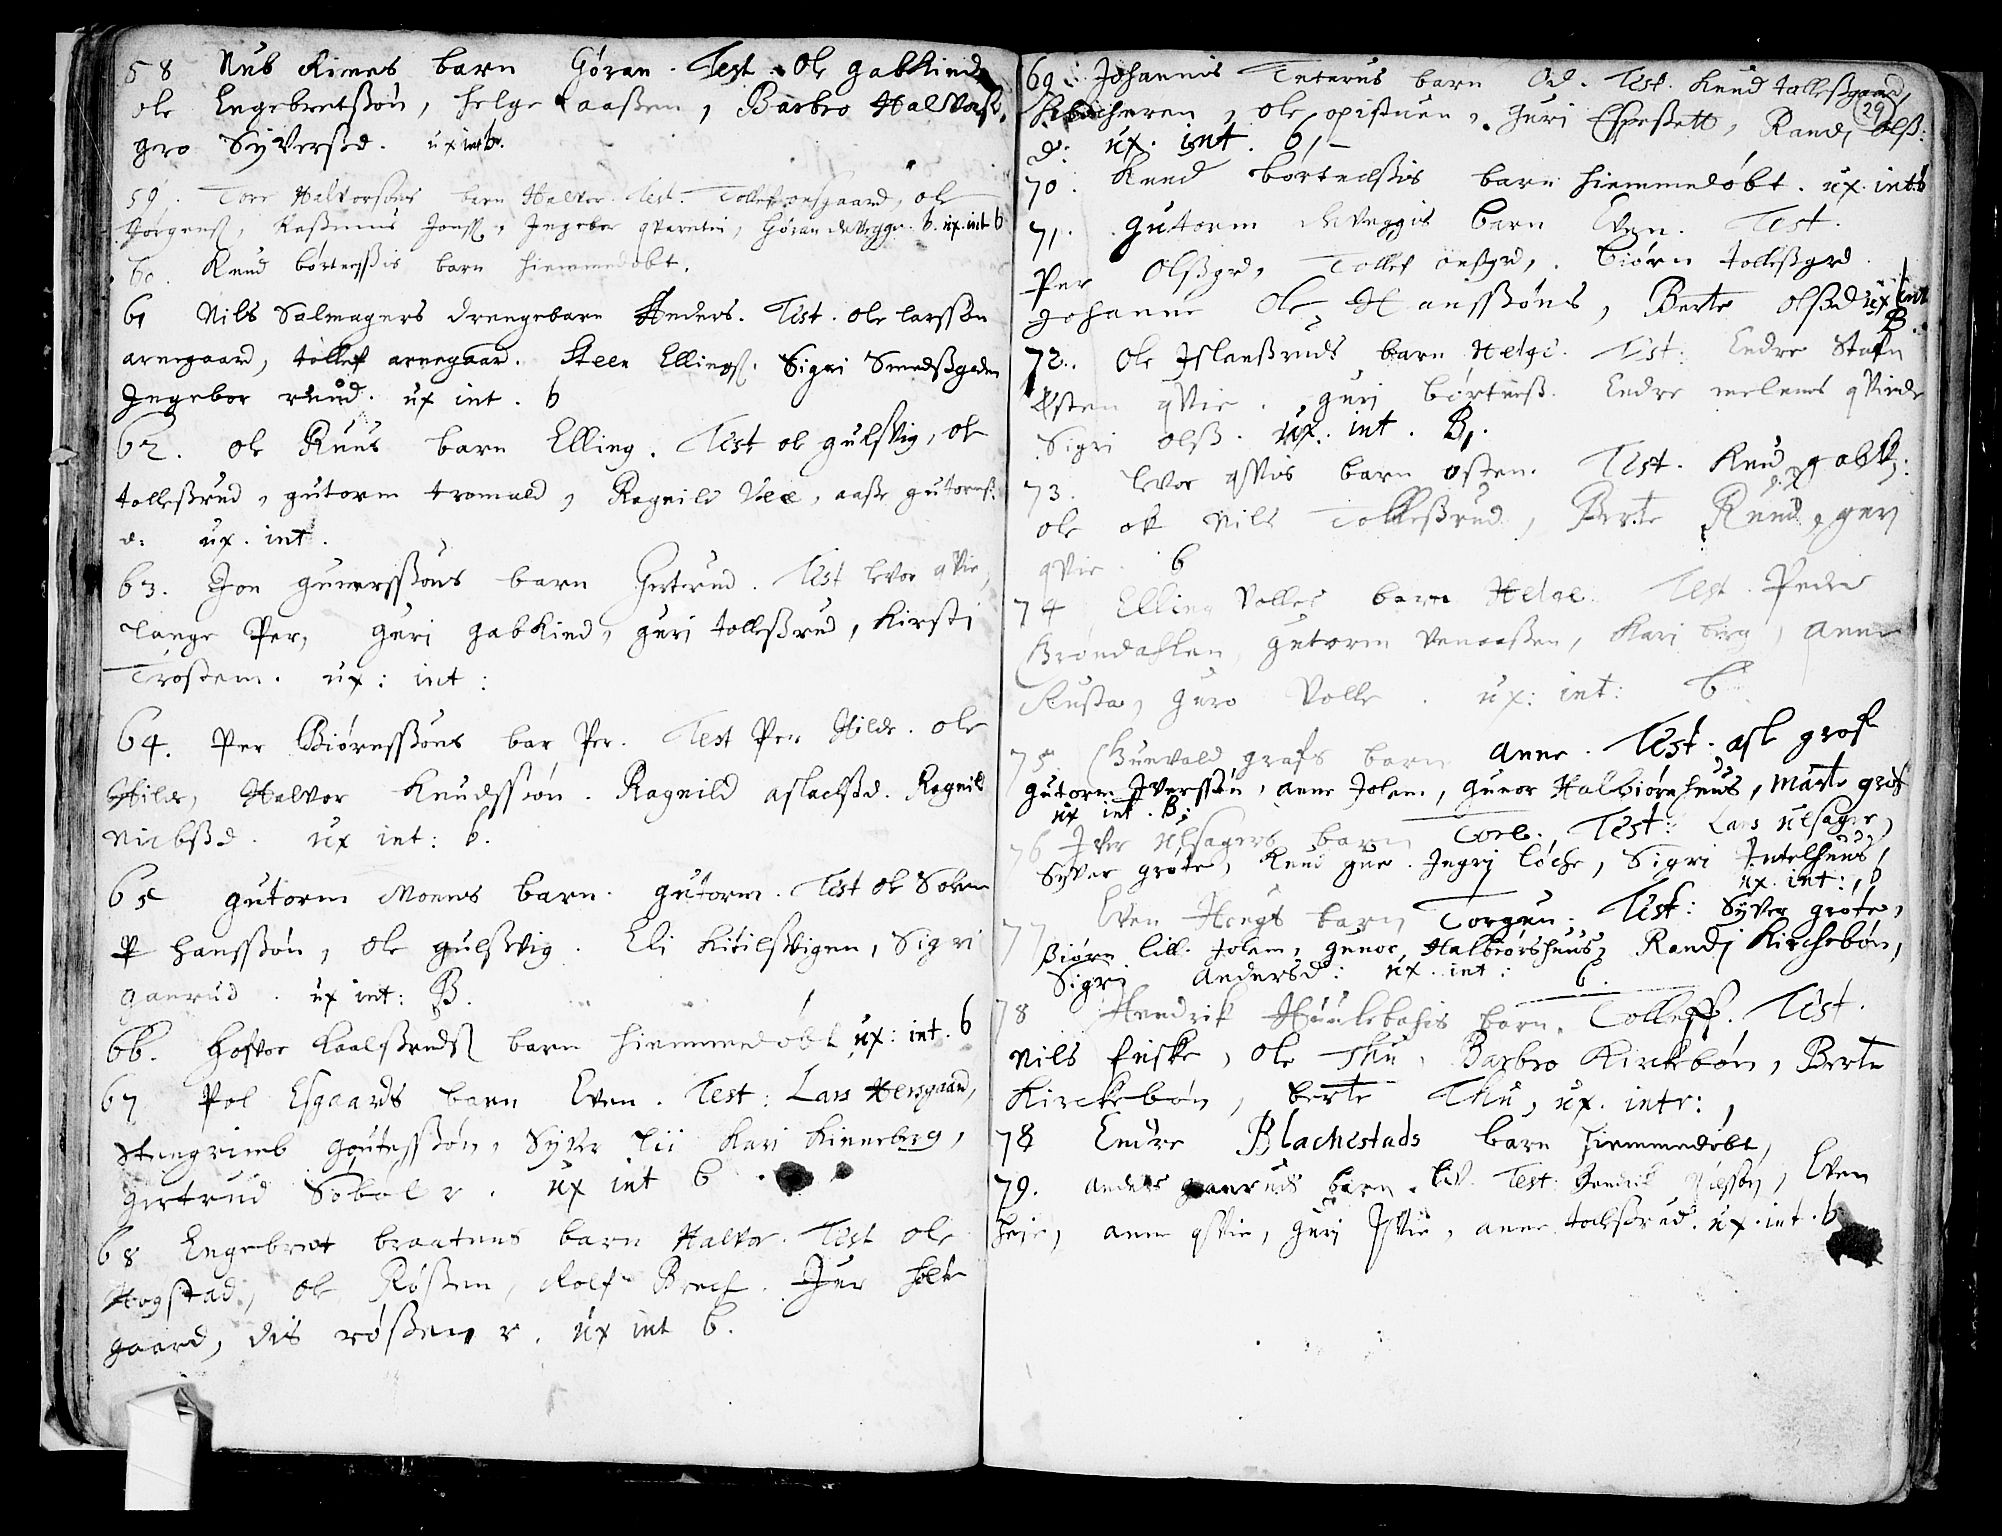 58 Nub Rimes barn Gøran. Test. Ole gabkind
ole Engebretssøn, helge aaßen, Barbro Halvorß.
gro Syversd. ux int b.
59. Tore Halvorsøns barn Halvor. Test. Tollef onsgaard, ole
Jørgenß, Rasmus Jonß, Ingebor qvarntei, Gøran deVegge. b. ux. int b
60. Knud børtneßis barn hiemmedøbt.
61 Nils Salmagers drengebarn Anders. Test. ole larssøn
arnegaard, tollef arnegaar. Steen Ellingß. Sigri Smedsgrden
Ingebor ruud. ux int. b
62. ole Ruus barn Elling. Test ole gulsvig, ole
tolleßrud, gutorm tromald, Ragnild Vee, aaße gutormß:
d: ux. int.
63. Jon gunnerssøns barn Gertrud. Test levor qvie,
lange Per, guri gabkind, guri tolleßrud, Kirsti
Trøstem. ux: int:
64. Per Biørnssøns bar Per. Test Per Hilde. ole
Hilde, Halvor Knudssøn. Ragnild aslachsd. Ragnild
Nubsd. ux int: b.
65 gutorm Moens barn. gutorm. Test ole Solem
P hanssøn, ole gulsvig. Eli Kitilsvigen, Sigri
ganrud. ux int: B.
66. hofvor kaalsrudß barn hiemmedøbt ux: int. b
67 Pol Esgaards barn Even. Test: Lars Hersgaard,
Stengrimb goutessøn, Syver lii Kari Kinneberg,
gertrud Søbøl r. ux int b
68 Engebret braatens barn Halvor. Test ole
Hogstad, ole Røßen, Rolf Breck. Jur hol
gaard, dis røßen r. ux int b.
69: Johannis Teterus barn Od. Test. Knud tolleßgaard,
29
ole opistuen, guri Espesett, Randi olß:
d: ux. int. b,
70. Knud børtneßis barn hiemmedøbt. ux. int b
71. gutorm deveggis barn Even. Test.
Per Olßgrd, Tollef onßgrd, biørn tolleßgrd
Johanne Ole Hanssøns, Berte olßd ux int
B.
72. Ole Islandßruds barn Helge. Test: Endre Stafn
Østen qvie. guri børtneß. Endre melens qvinde
Sigri olß. ux. int. B.
73. levor qvies barn østen. Test. Knud gabk:
ole ok Nils Tolleßrud, Berte Ruud, gurj
qvie. b
74 Elling Volles barn Helge. Test. Peder
Brøndahlen, gutorm venaaßen, Kari berg, Anne
Rusta, guro Volle. ux: int: b
75. Gunvald grafs barn Anne. Test. asle graf
gutorm Iverssøn, anne Jolem, gunor Halbiørnhuus, Marte graf
ux int. B.
76 Iver Ulsagers barn Tore. Test: Lars Ulsager,
Syver grøte, Knud gue. Ingri løche, Sigri Intelhuus,
ux. int:, b
77 Even Hougs barn Torgun. Test: Syver grøte,
Biørn lill. Jolem, gunor, Halbiørshuus, Randj Kirchebøn,
Sigri Andersd: ux. int: b.
78 Hendrik Huulebachis barn. Tolleff. Test.
Nils Eniske, Ole Thu, Barbro Kirkebøn, Berte
Kirckebøn, berte Thu, ux. intr:,
78 Endre Blachestads barn hiemmedøbt,
79. anders ganruds barn. liv. Test: Hendrik Nilssøn, Even
heie, anne qvie, gurj Jsvie, anne tolesrud. ux. int. b